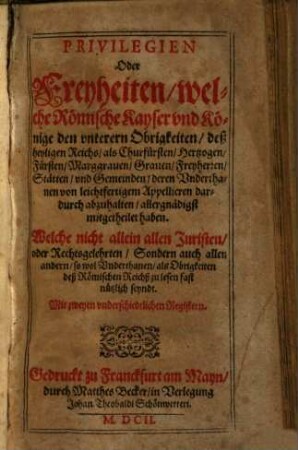 PRIVILEGIEN
Oder
Freyheiten/wel-
che Römische Kayser vnd Kö-
nige den vnterern Obrigkeiten/ deß
heyligen Reichs/ als Churfürsten/ Hertzogen/
Fürsten/ Marggrauen/ Grauen/ Freyherren/
Stätten/ vnd Gemeinden/ deren Vndertha-
nen von leichtfertigem Appellieren dar-
durch abzuhalten/ allergnädigst
mitgetheilet haben.
Welche nicht allein allen Juristen/
oder Rechtsgelehrten/ Sondern auch allen
andern/ so wol Vnderthanen/ als Obrigkeiten
deß Römischen Reichs zu lesen fast
nützlich seyndt.
Mit zweyen vnderschiedlichen Registern.
Gedruckt zu Franckfurt am Mayn/
durch Matthes Becker/ in Verlegung
Johan. Theobaldi Schönwetteri.
M. DCII.